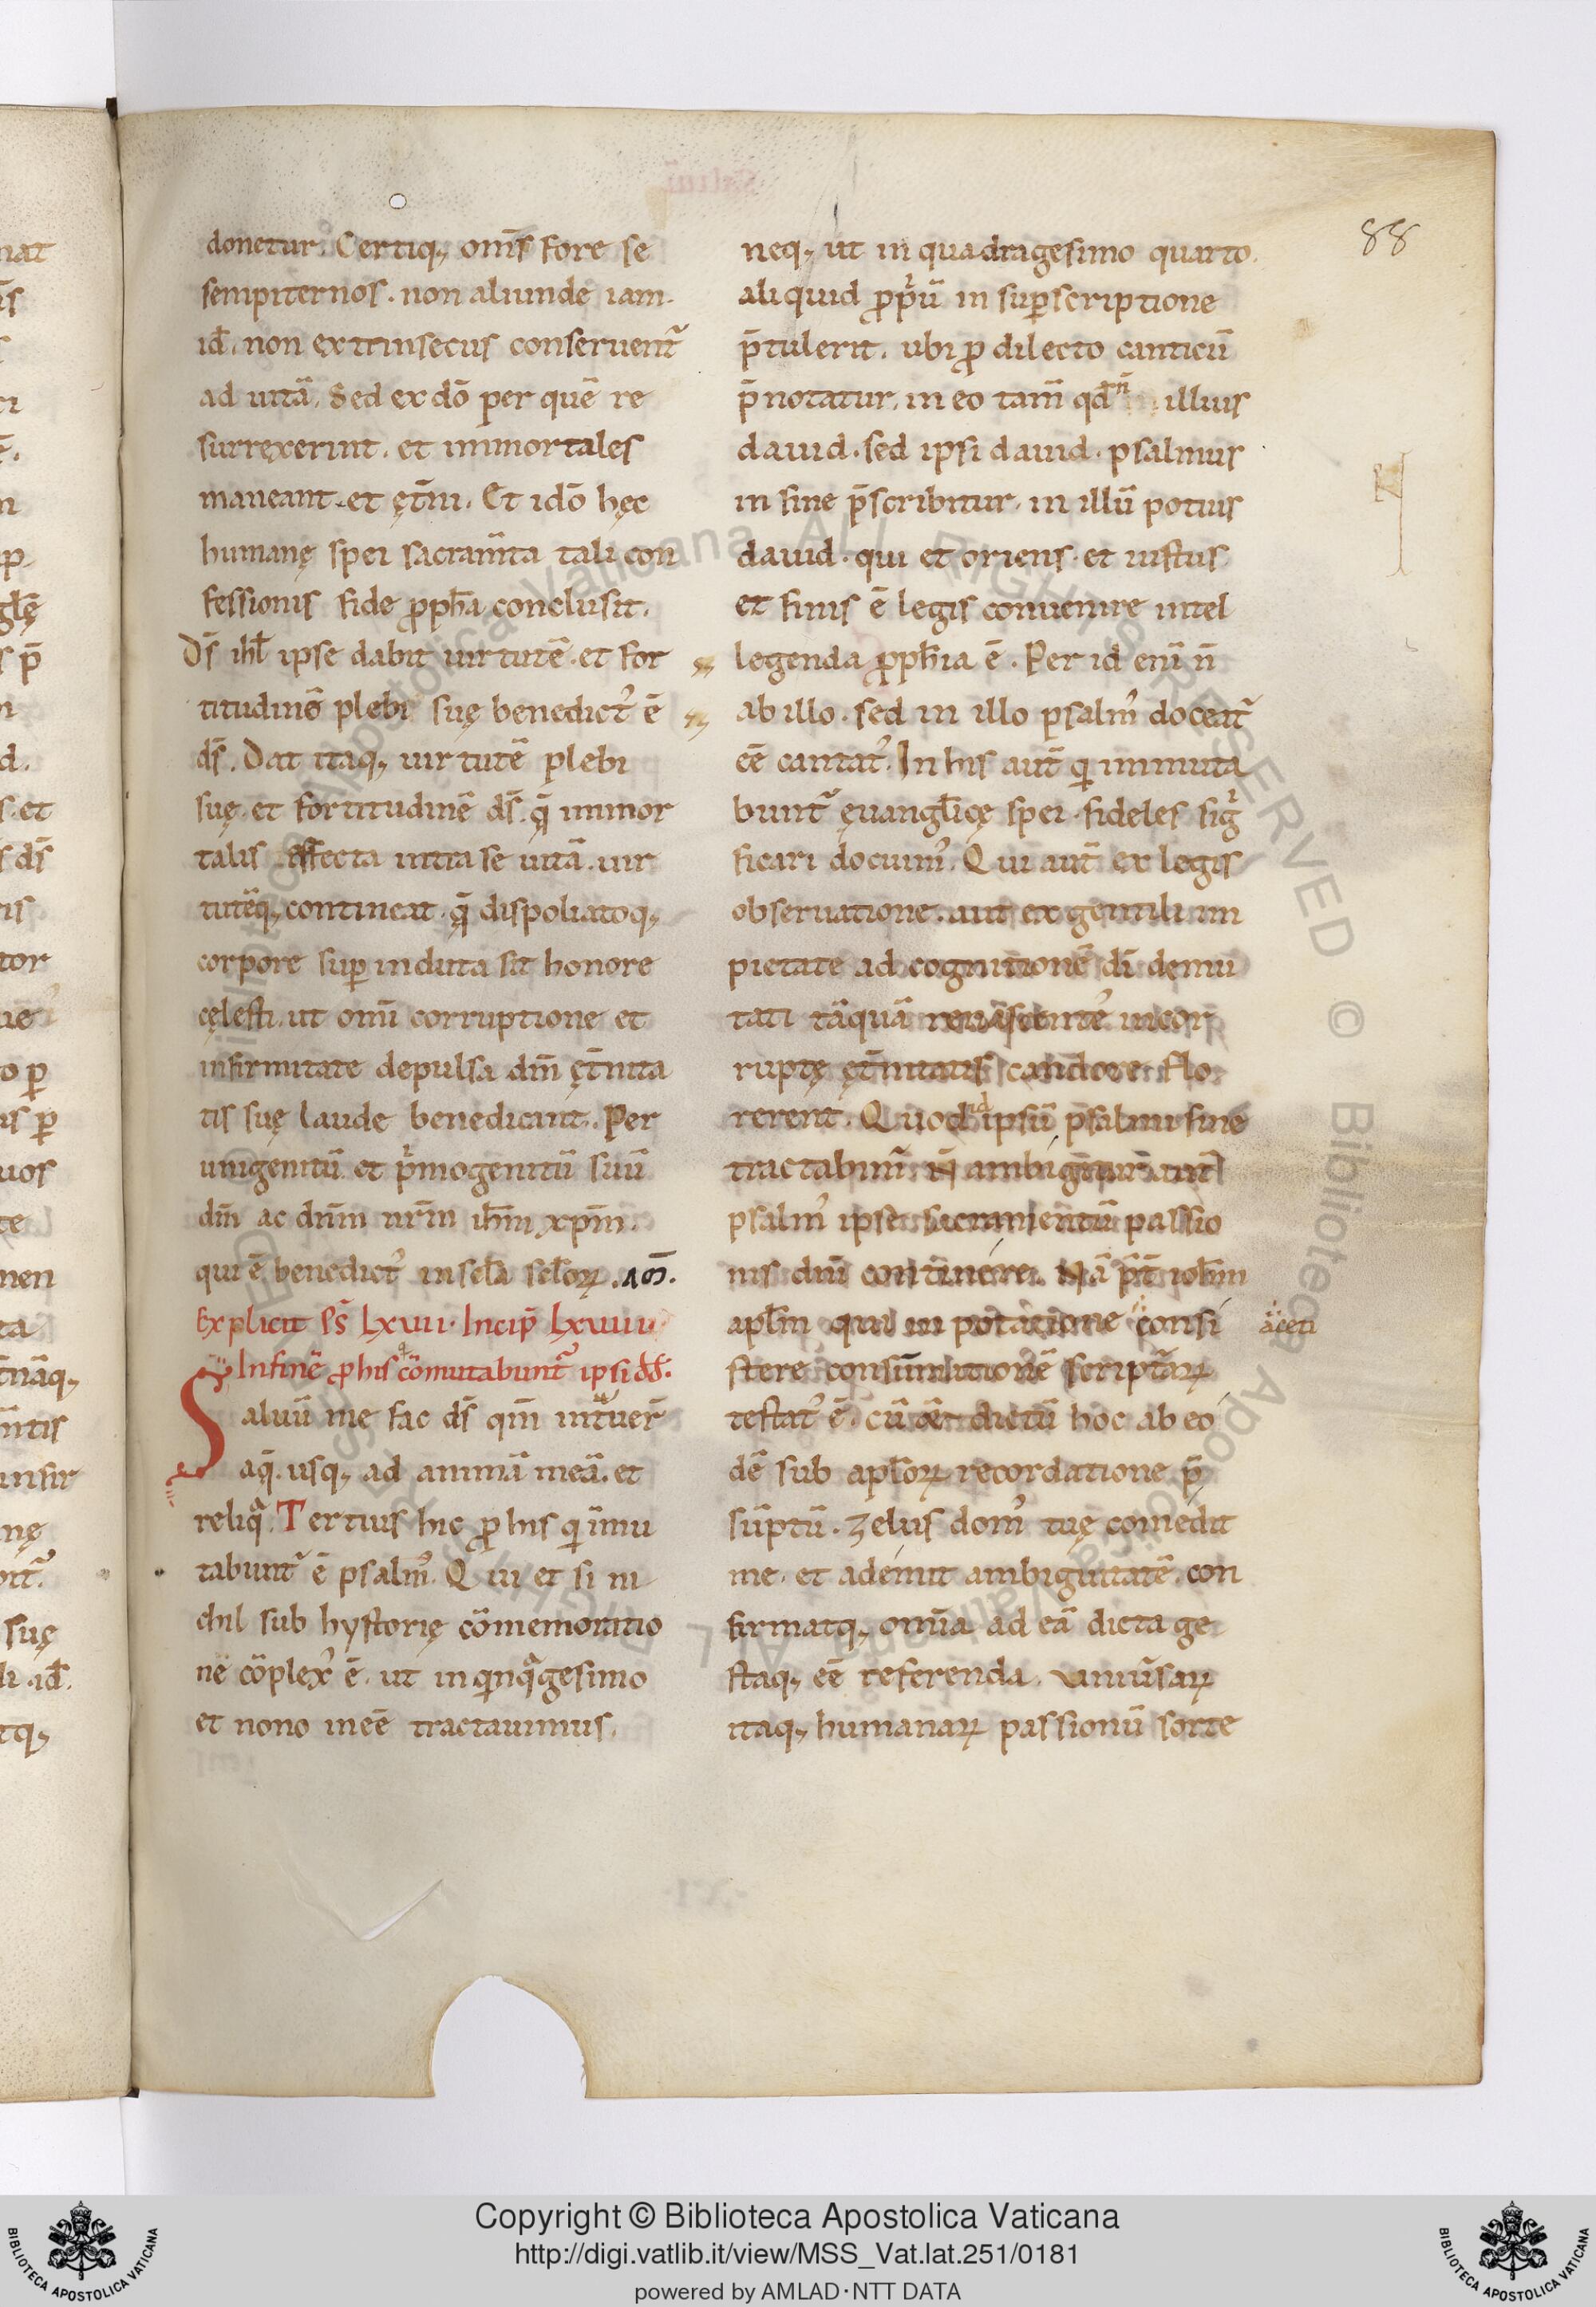 88
donetur. Certiq; om̄s fore se
sempiternos. non aliunde iam.
id̄. non extrinsecus conseruent᷑
ad uitā. Sed ex dō per quē re
surrexerint. et immortales
maneant. et ęt̄ni. Et idō hęc
humanę spei sacram̄ta tali con
fessionis fide ꝓph̄a conclusit.
Ds̄ ihl̄ ipse dabit uirtutē. et for
titudinē plebi suę benedict᾽ ē
ds̄. Dat itaq; uirtutē plebi
suę. et fortitudinē ds̄. q̄ immor
talis effecta intra se uitā. uir
tutēq; contineat. q̄ dispoliatoq;
corpore suꝑinduta sit honore
cęlesti. ut omī corruptione et
infirmitate depulsa dm̄ ęt̄nita
tis suę laude benedicant. Per
unigenitū et pͥmogenitū suū
dm̄ ac dn̄m nr̄m ih̄m xpm̄.
qui ē benedict᾽ in scl̄a scl̄oꝝ. am̄.
Explicit Ps̄ lxvii. Incip̄ lxviii
In finē ꝓ his q̇ cōmutabunt᷑ ipsi dd̄.
Saluū me fac ds̄ qm̄ int̄uer̄
aq̄. usq; ad animā meā. et
reliqᷓ. Tertius hic ꝓ his qͥ īmu
tabunt᷑ ē psalm᾽. Qui et si ni
chil sub hystorię cōmemoratio
nē cōplex᾽ ē. ut in qͥnqᷓgesimo
et nono ineē tractauimus.
neq; ut in quadragesimo quarto.
aliquid ꝓpͥū in suꝑscriptione
p̄tulerit. ubi ꝓ dilecto canticū
p̄notatur. in eo tam̄ qd̄ n̄ illius
dauid. sed ipsi dauid. psalmus
in fine p̄scribitur. in illū potius
dauid. qui et oriens. et iustus
et finis ē legis conuenire intel
legenda ꝓph̄ia ē. Per id enī n̄
ab illo. sed in illo psalm᾽ doceat᷑
eē cantat᾽. In his aut̄ qͥ immuta
bunt᷑ ęuangl̄icę spei. fideles sigͥ
ficari docuim᾽. Qui aut̄ ex legis
obseruatione. aut ex gentili im
pietate ad cognitionē dī demu
tati tāquā renascente᾽ incor
ruptę ęt̄nitatis candore flo
rerent. Quod id ipsū psalmi fine
tractabim᾽. N̄ ambigitur aut̄
psalm᾽ ipse sacramentū passio
nis dnī continere. Nā p̄t ioh̄m
apl̄m qui in potatione consi
aceti
stere consūmationē scripturaꝝ
testat᾽ ē. cū et dictū hoc ab eo
dē sub apl̄oꝝ recordatione p̄
sūptū. zelus dom᾽ tuę comedit
me. et ademit ambiguitatē. con
firmatq; omīa ad eā dicta ge
staq; eē referenda. Uniūsaꝝ
itaq; humanaꝝ passionū sorte
© Biblioteca Apostolica Vaticana ALL RIGHTS RESERVED
Copyright © Biblioteca Apostolica Vaticana
http://digi.vatlib.it/view/MSS_Vat.lat.251/0181
powered by AMLAD·NTT DATA
BIBLIOTECA APOSTOLICA VATICANA
BIBLIOTECA APOSTOLICA VATICANA